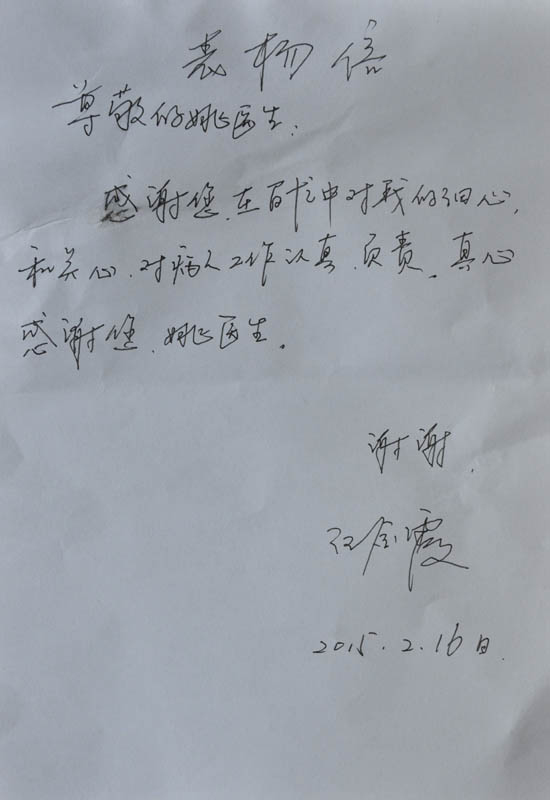 表杨信
尊敬的姚医生.
感谢您,在百忙中对我的细心,
和关心,对病人工作认真,负责。真心
感谢您,姚医生。
谢谢,
2015.2.16日.